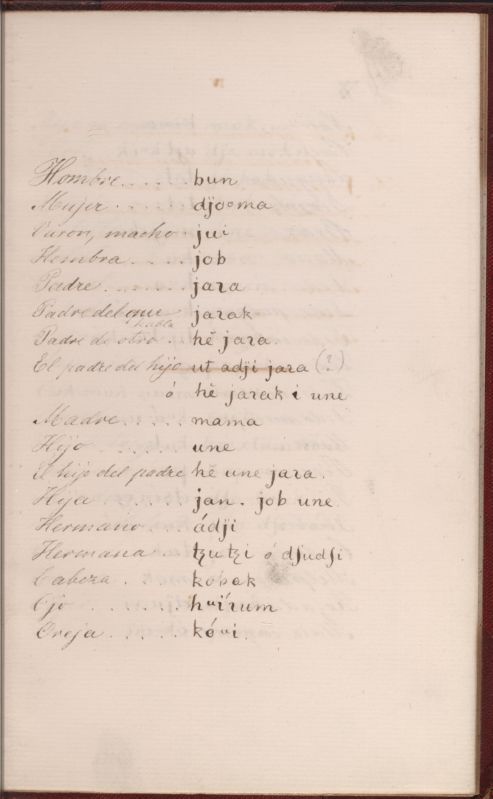 Hombre..... bun
Mujer..... djoᵒma
Varon, macho. juⁱ
Hembra.... job
Padre....... jaꝛa
Padre del que habla jaꝛak
Padre de otro.. hĕ jaꝛa
El padre del hijo ut adji jaꝛa (?)
ó hĕ jaꝛak i une
Madre..... mama
Hijo ...... une
El hijo del padre hĕ une jaꝛa.
Hija ..... jan. job une
Hermano... ádji
Hermana.. tzutzi ó dʃudʃi
Cabeza. kobak
Ojo ....... hʷíꝛum
Oreja...... kóʷi.